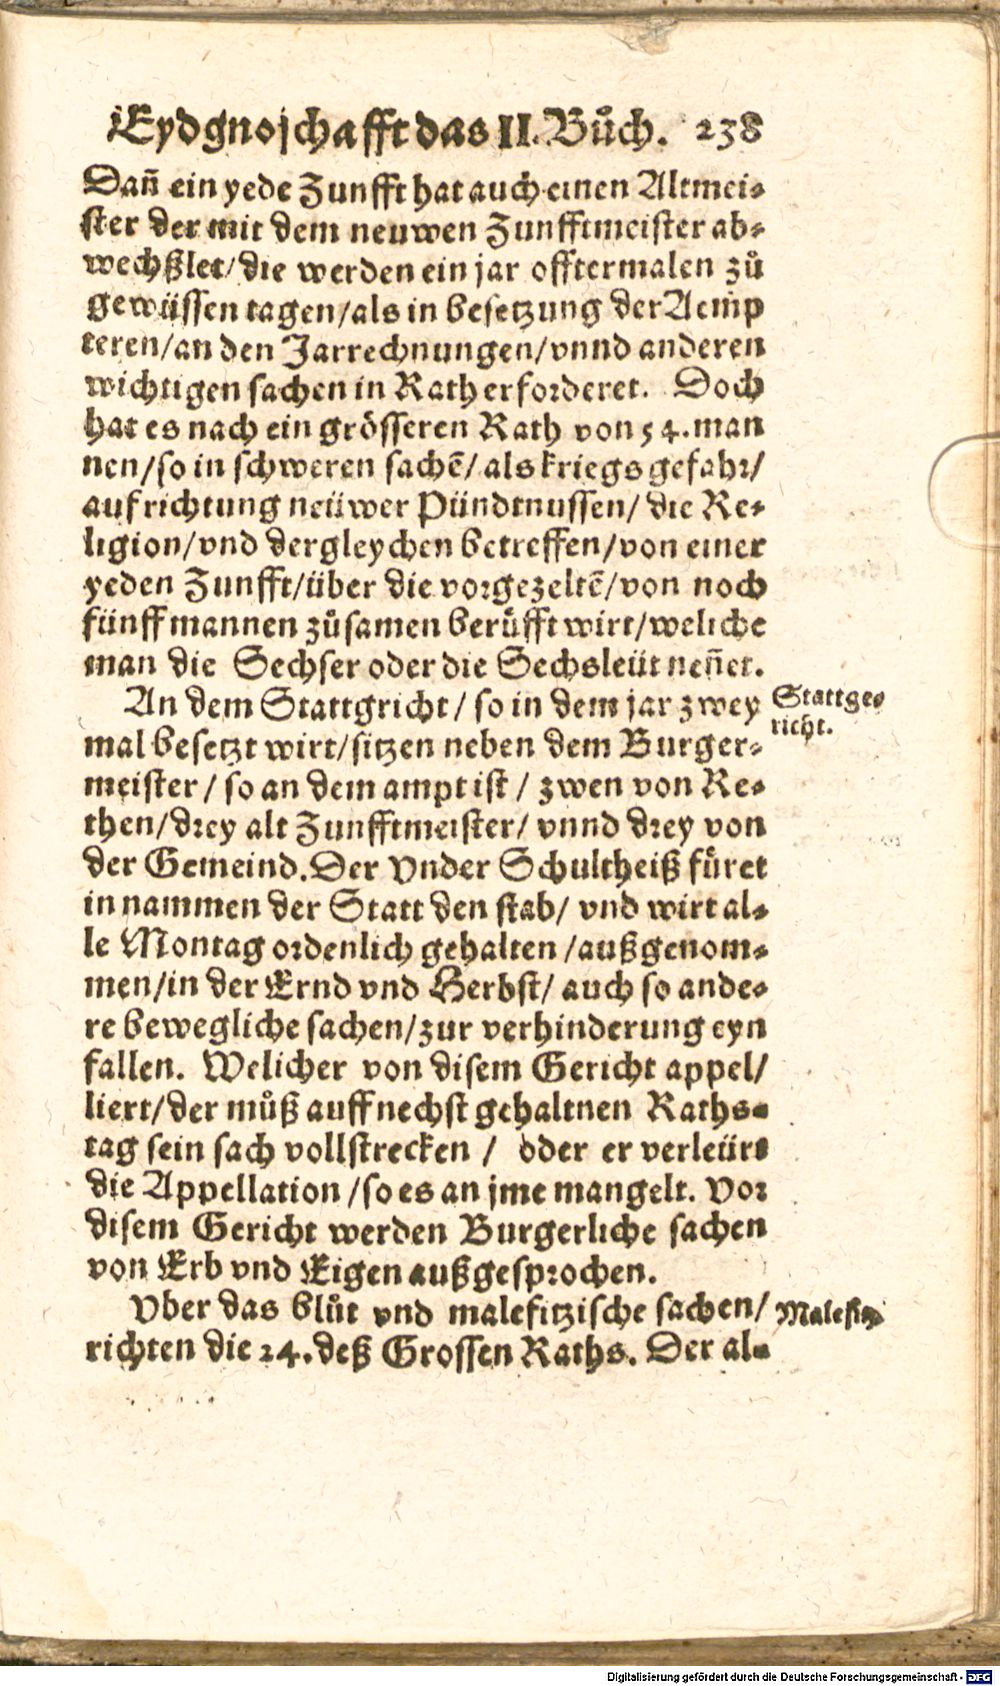 Eydgnoschafft das II. Bůch. 238
Dañ ein yede Zunfft hat auch einen Altmei-
ster der mit dem neuwen Zunfftmeister ab-
wechßlet/die werden ein jar offtermalen zů
gewüssen tagen/als in besetzung der Aemp
teren/an den Jarrechnungen/vnnd anderen
wichtigen sachen in Rath erforderet. Doch
hat es nach ein grösseren Rath von 54. man
nen/so in schweren sachẽ/als kriegsgefahr/
aufrichtung neüwer Pündtnussen/die Re-
ligion/vnd dergleychen betreffen/von einer
yeden Zunfft/über die vorgezeltẽ/von noch
fünff mannen zůsamen berůfft wirt/weliche
man die Sechser oder die Sechsleüt neñet.
An dem Stattgricht/so in dem jar zwey
Stattge-
richt.
mal besetzt wirt/sitzen neben dem Burger-
meister/so an dem ampt ist/zwen von Re-
then/drey alt Zunfftmeister/vnnd drey von
der Gemeind. Der Vnder Schultheiß füret
in nammen der Statt den stab/vnd wirt al-
le Montag ordenlich gehalten/außgenom-
men/in der Ernd vnd Herbst/auch so ande-
re bewegliche sachen/zur verhinderung eyn
fallen. Welicher von disem Gericht appel/
liert/der můß auff nechst gehaltnen Raths-
tag sein sach vollstrecken/oder er verleürt
die Appellation/so es an jme mangelt. Vor
disem Gericht werden Burgerliche sachen
von Erb vnd Eigen außgesprochen.
Vber das blůt vnd malefitzische sachen/
Malefitz.
richten die 24. deß Grossen Raths. Der al-
Digitalisierung gefördert durch die Deutsche Forschungsgemeinschaft - DFG